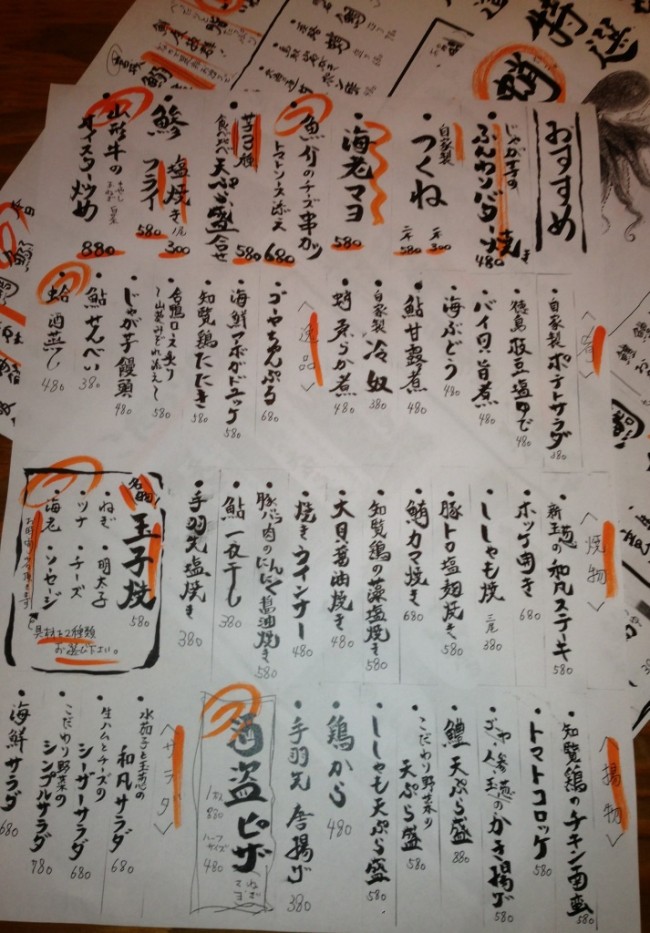 おすすめ
じゃが芋の
ふんわりバター焼き
480
自家製
つくね
一本 300
二本 580
海老マヨ
580
魚介のチーズ串カツ
トマトソース添え
680
芋3種
食べ比べ天ぷら盛合せ
580
鯵
塩焼き 300
フライ 580
山形牛の
オイスター炒め
880
〈肴〉
・自家製 ポテトサラダ 380
・徳島 枝豆塩ゆで 480
・バイ貝旨煮 480
・海ぶどう 480
・鮎甘露煮 480
・自家製 冷奴 380
・蛸柔らか煮 480
〈逸品〉
・ゴーヤちゃんぷる 680
・海鮮アボガドユッケ 580
・知覧鶏たたき 580
・合鴨ロース
580
・じゃが芋饅頭 480
・鮎せんべい 380
・蛤 酒蒸し 480
〈焼物〉
・新玉葱の和風ステーキ 580
・ホッケ開き 680
・ししゃも焼 三尾 380
・豚トロ塩麹焼き 580
・鮪カマ焼き 680
・知覧鶏の藻塩焼き 580
・大貝醤油焼き 480
・焼きウインナー 480
・豚バラ肉のにんにく醤油焼き 580
・鮎一夜干し 380
・手羽先塩焼き 380
名物!
玉子焼
580
・ねぎ ・明太子
・ツナ ・チーズ
・海老 ・ソーセージ
具材を2種類
お選び下さい。
〈揚物〉
・知覧鶏のチキン南蛮 580
・トマトコロッケ 580
・ゴーヤ・新玉葱のかき揚げ 580
・鱧天ぷら盛 880
・こだわり野菜の
天ぷら盛 580
・ししゃも天ぷら盛 580
・鶏から 480
・手羽先 唐揚げ 380
酒盗ピザ
1枚 800
ハーフサイズ 480
〈サラダ〉
・水茄子と玉葱の
和風サラダ 680
・生ハムとチーズの
シーザーサラダ 680
・こだわり野菜の
シンプルサラダ 780
・海鮮サラダ 680
特選
蛸